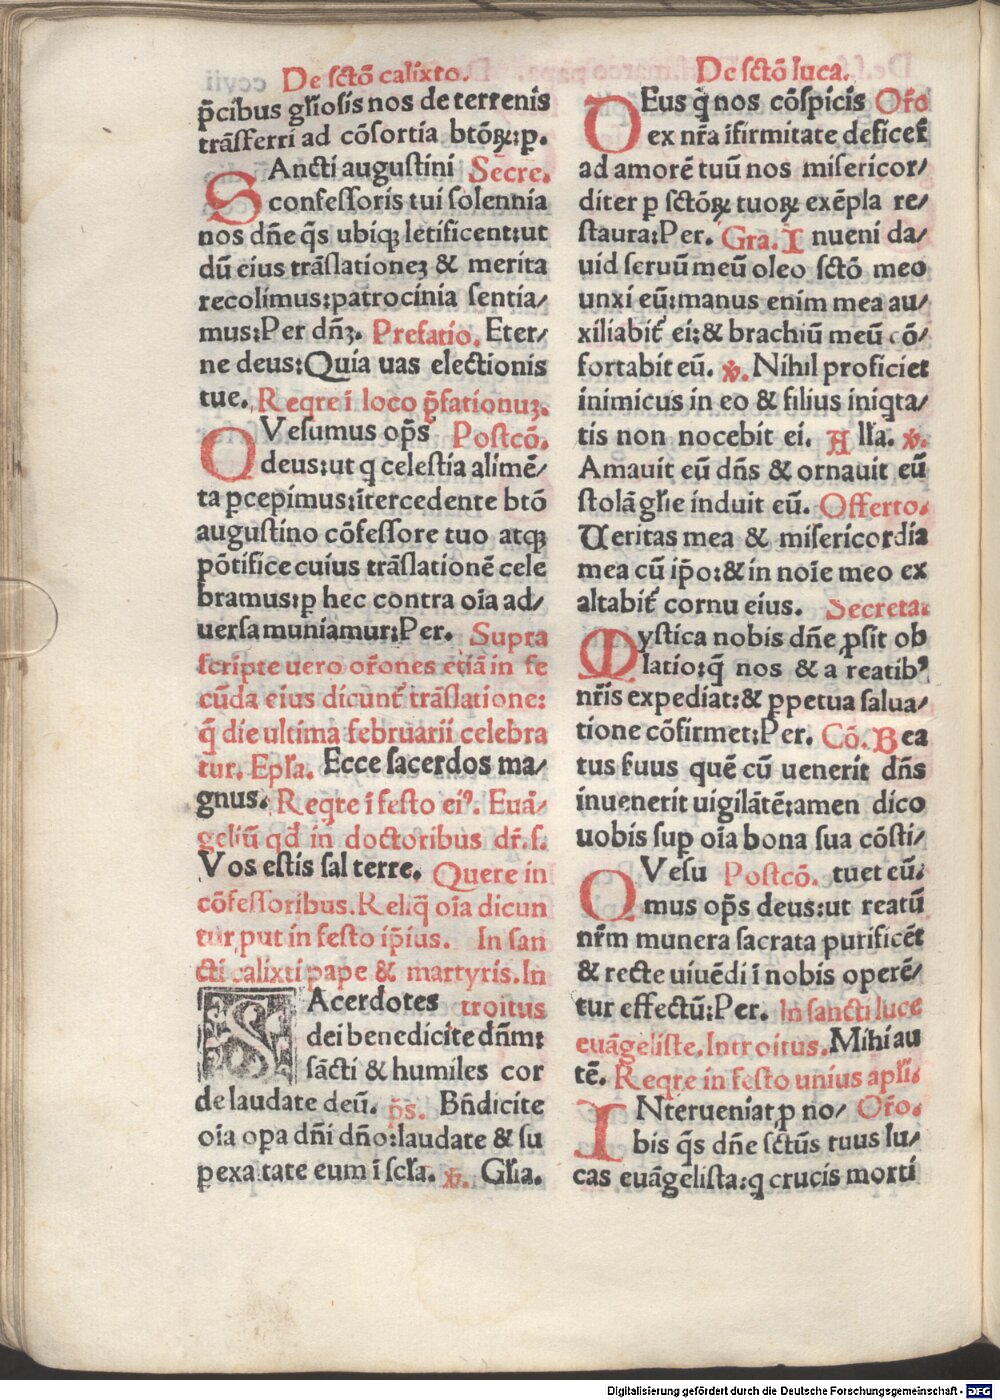 De sctō calixto.
p̄cibus gl̄iosis nos de terrenis
trāsferri ad cōsortia btōꝝ:ꝑ.
Ancti augustini Secre.
S confessoris tui solennia
nos dn̄e q̄s ubiqꝫ letificent:ut
dū eius trāslationeꝫ & merita
recolimus:patrocinia sentia/
mus:Per dn̄ꝫ. Prefatio. Eter/
ne deus:Quia uas electionis
tue. Reqre ī loco p̄fationuꝫ.
QVesumus op̄s Postcō.
deus:ut q celestia alimē/
ta ꝑcepimus:ītercedente btō
augustino cōfessore tuo atqꝫ
pōtifice cuius trāslationē cele
bramus:ꝑ hec contra oīa ad/
uersa muniamur:Per. Supra
scripte uero or̄ones etiā in se
cūda eius dicunt᷑ trāslatione:
q̄ die ultima februarii celebra
tur. Epl̄a. Ecce sacerdos ma/
gnus. Reqre ī festo eiꝰ. Euā/
geliū qd̄ in doctoribus dr̄.s.
Vos estis sal terre. Quere in
cōfessoribus. Reliq̄ oīa dicun
tur put in festo ip̄ius. In san
cti calixti pape & martyris. In
SAcerdotes troitus
dei benedicite dn̄m:
sācti & humiles cor
de laudate deū. p̄s. Bn̄dicite
oīa opa dn̄i dn̄o:laudate & su
ꝑexaltate eum ī scl̄a. ꝟ. Gl̄ia.
De sctō luca.
DEus q̄ nos cōspicis Or̄o
ex nr̄a īfirmitate deficer̄
ad amorē tuū nos misericor/
diter ꝑ sctōꝝ tuoꝝ exēpla re/
staura:Per. Gra. Inueni da/
uid seruū meū oleo sctō meo
unxi eū:manus enim mea au/
xiliabit᷑ ei:& brachiū meū cō/
fortabit eū. ꝟ. Nihil proficiet
inimicus in eo & filius iniqta/
tis non nocebit ei. All̄a. ꝟ.
Amauit eū dn̄s & ornauit eū
stolā gl̄ie induit eū. Offerto.
Ueritas mea & misericordia
mea cū ip̄o:& in noīe meo ex
altabit᷑ cornu eius. Secreta:
Mystica nobis dn̄e ꝓsit ob
latio:q̄ nos & a reatibꝰ
nr̄is expediat:& ꝑpetua salua/
tione cōfirmet:Per. Cō. Bea
tus fuus quē cū uenerit dn̄s
inuenerit uigilātē:amen dico
uobis suꝑ oīa bona sua cōsti/
QVesu Postcō. tuet eū:
mus op̄s deus:ut reatū
nr̄m munera sacrata purificēt
& recte uiuēdi ī nobis operē/
tur effectū:Per. In sancti luce
euāgeliste. Introitus. Mihi au
tē. Reqre in festo unius apl̄i.
INterueniat ꝓ no/ Or̄o.
bis q̄s dn̄e sctūs tuus lu/
cas euāgelista:q crucis morti
Digitalisierung gefördert durch die Deutsche Forschungsgemeinschaft - DFG